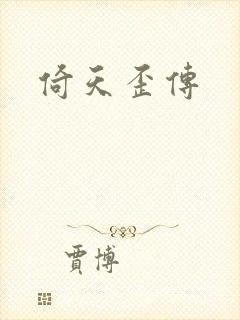 倚天歪傳
賈博